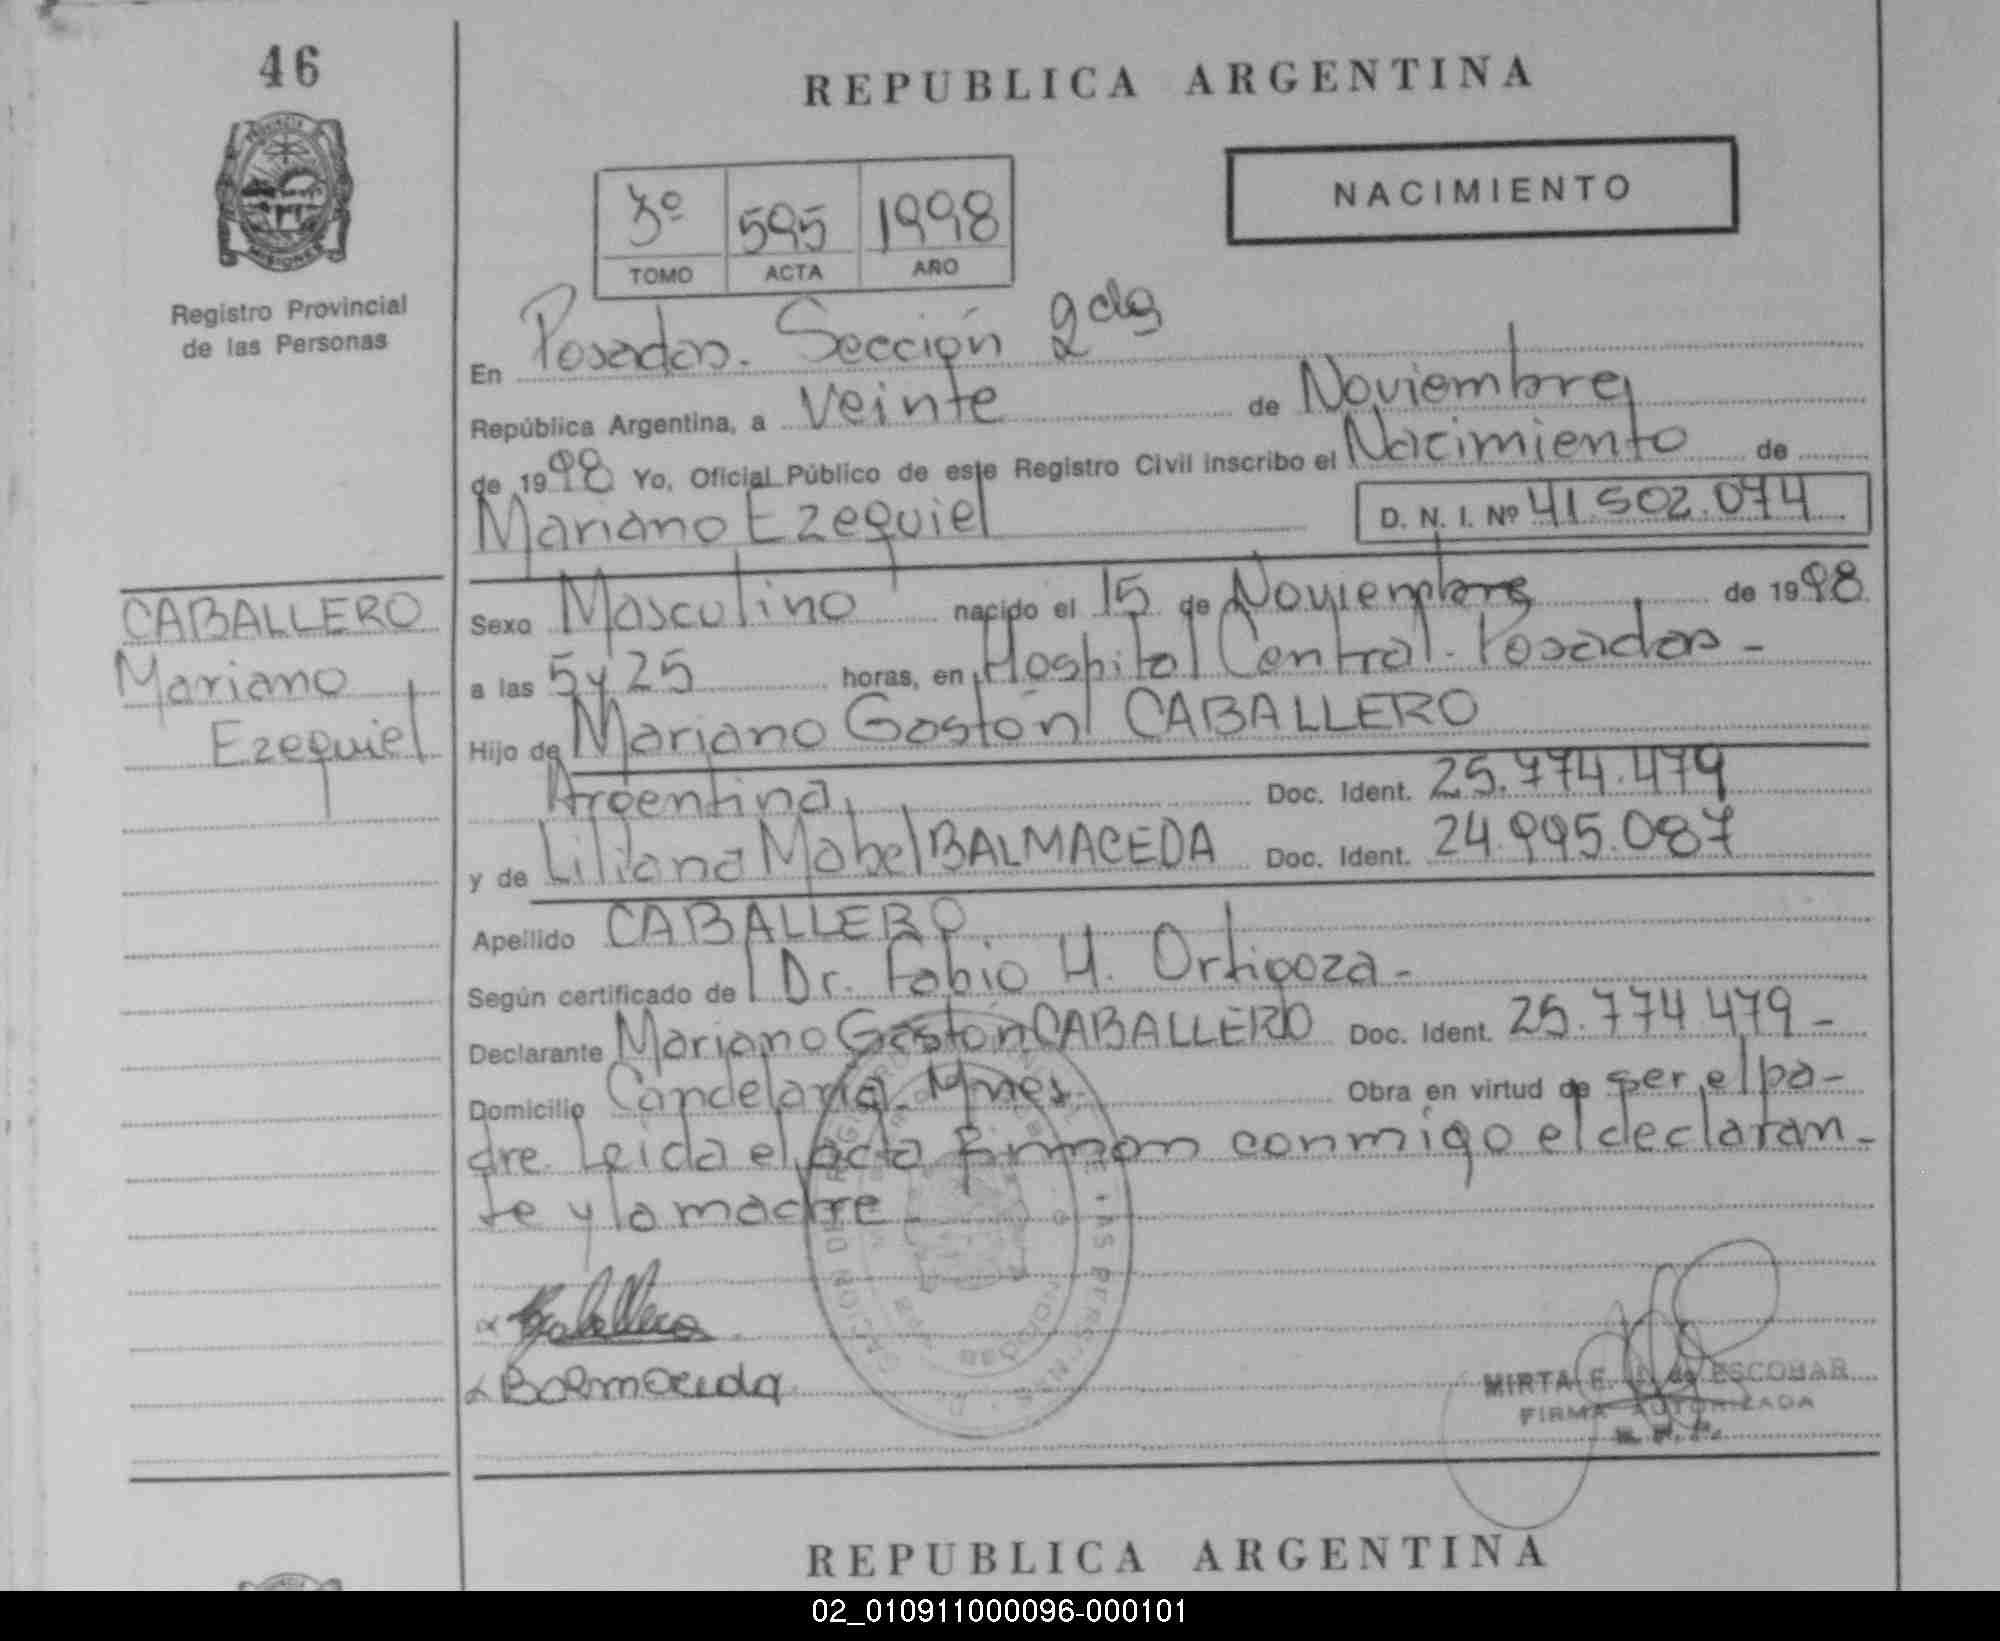 46
REPUBLICA ARGENTINA
PROVINCIA
MISIONES
Registro Provincial
de las Personas
3º 595 1998
TOMO ACTA AÑO
NACIMIENTO
En Posadas. Sección 2da
República Argentina, a Veinte de Noviembre
de 1998 Yo, Oficial Público de este Registro Civil inscribo el Nacimiento de
Mariano Ezequiel D. N. I. Nº 41.502.074
CABALLERO
Mariano
Ezequiel
Sexo Masculino nacido el 15 de Noviembre de 1998
a las 5 y 25 horas, en Hospital Central. Posadas -
Hijo de Mariano Gastón CABALLERO
Argentina, Doc. Ident. 25.774.479
y de Liliana Mabel BALMACEDA Doc. Ident. 24.995.087
Apellido CABALLERO
Según certificado de Dr. Fabio H. Ortigoza -
Declarante Mariano Gastón CABALLERO Doc. Ident. 25.774.479 -
Domicilio Candelaria. Mnes. Obra en virtud de ser el pa-
dre. Leida el acta firman conmigo el declaran-
te y la madre
Caballero
Balmaceda
MIRTA E. de ESCOBAR
FIRMA AUTORIZADA
R. P. P.
REPUBLICA ARGENTINA
02_010911000096-000101